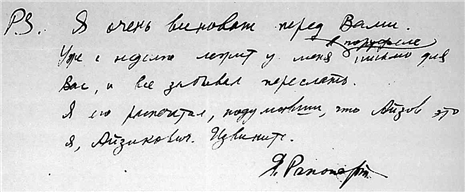 PS. Я очень виноват перед Вами.
Уже с неделю лежит у меня в портфеле письмо для
Вас, и все забывал переслать.
Я его распечатал, подумавши, что Айзов это
я, Айзикович. Извините.
Я. Рапопорт